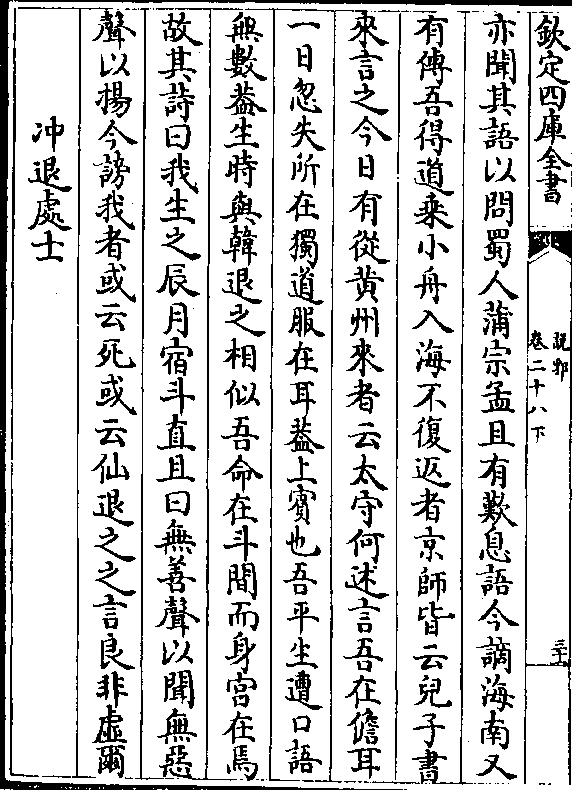 欽定四庫全書
說郛
卷二十八下
三十
亦聞其語以問蜀人蒲宗孟且有歎息語今謫海南又
有傳吾得道乗小舟入海不復返者京師皆云兒子書
來言之今日有從黄州來者云太守何述言吾在儋耳
一日忽失所在獨道服在耳葢上賓也吾平生遭口語
無數葢生時與韓退之相似吾命在斗間而身宫在焉
故其詩曰我生之辰月宿斗直且曰無善聲以聞無惡
聲以揚今謗我者或云死或云仙退之之言良非虛爾
冲退處士